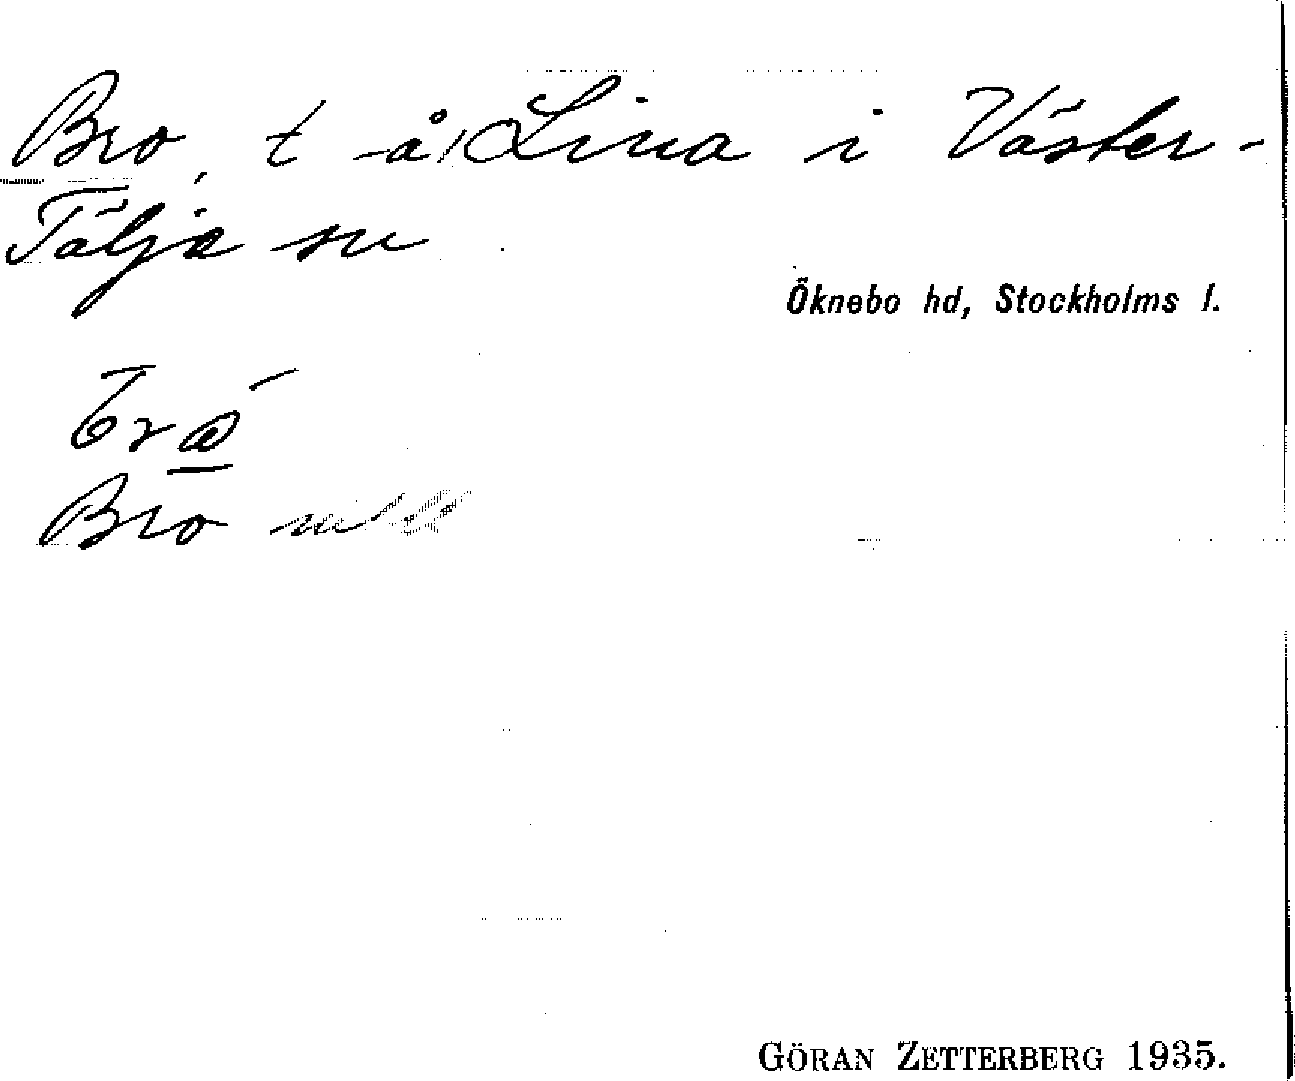 Bro, t å Lina i Väster-
Tälja sn
Öknebo hd, Stockholms l.
Bro
GÖRAN ZETTERBERG 1935.